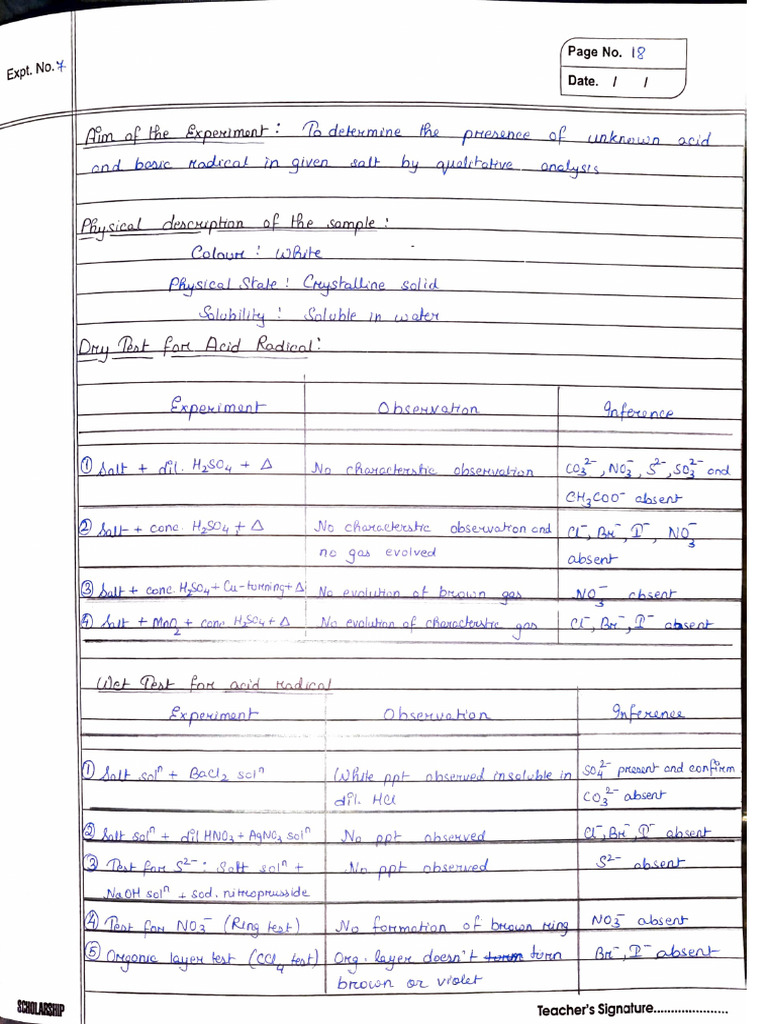 Page No. 18
Expt. No. 7
Date. / /
Aim of the Experiment : To determine the presence of unknown acid
and basic radical in given salt by qualitative analysis
Physical description of the sample :
Colour : White
Physical State : Crystalline solid
Solubility : Soluble in water
Dry Test for Acid Radical :
Experiment Observation Inference
① Salt + dil. H₂SO₄ + Δ No characterstic observation CO₃²⁻, NO₃⁻, S²⁻, SO₃²⁻ and
CH₃COO⁻ absent
② Salt + conc. H₂SO₄ + Δ No characterstic observation and Cl⁻, Br⁻, I⁻, NO₃⁻
no gas evolved absent
③ Salt + conc. H₂SO₄ + Cu-turning + Δ No evolution of brown gas NO₃⁻ absent
④ Salt + MnO₂ + conc. H₂SO₄ + Δ No evolution of characterstic gas Cl⁻, Br⁻, I⁻ absent
Wet Test for acid radical
Experiment Observation Inference
① Salt solⁿ + BaCl₂ solⁿ White ppt observed insoluble in SO₄²⁻ present and confirm
dil. HCl CO₃²⁻ absent
② Salt solⁿ + dil HNO₃ + AgNO₃ solⁿ No ppt observed Cl⁻, Br⁻, I⁻ absent
③ Test for S²⁻ : Salt solⁿ + No ppt observed S²⁻ absent
NaOH solⁿ + sod. nitroprusside
④ Test for NO₃⁻ (Ring test) No formation of brown ring NO₃⁻ absent
⑤ Organic layer test (CCl₄ test) Org. layer doesn't turn Br⁻, I⁻ absent
brown or violet
SCHOLARSHIP
Teacher's Signature.....................